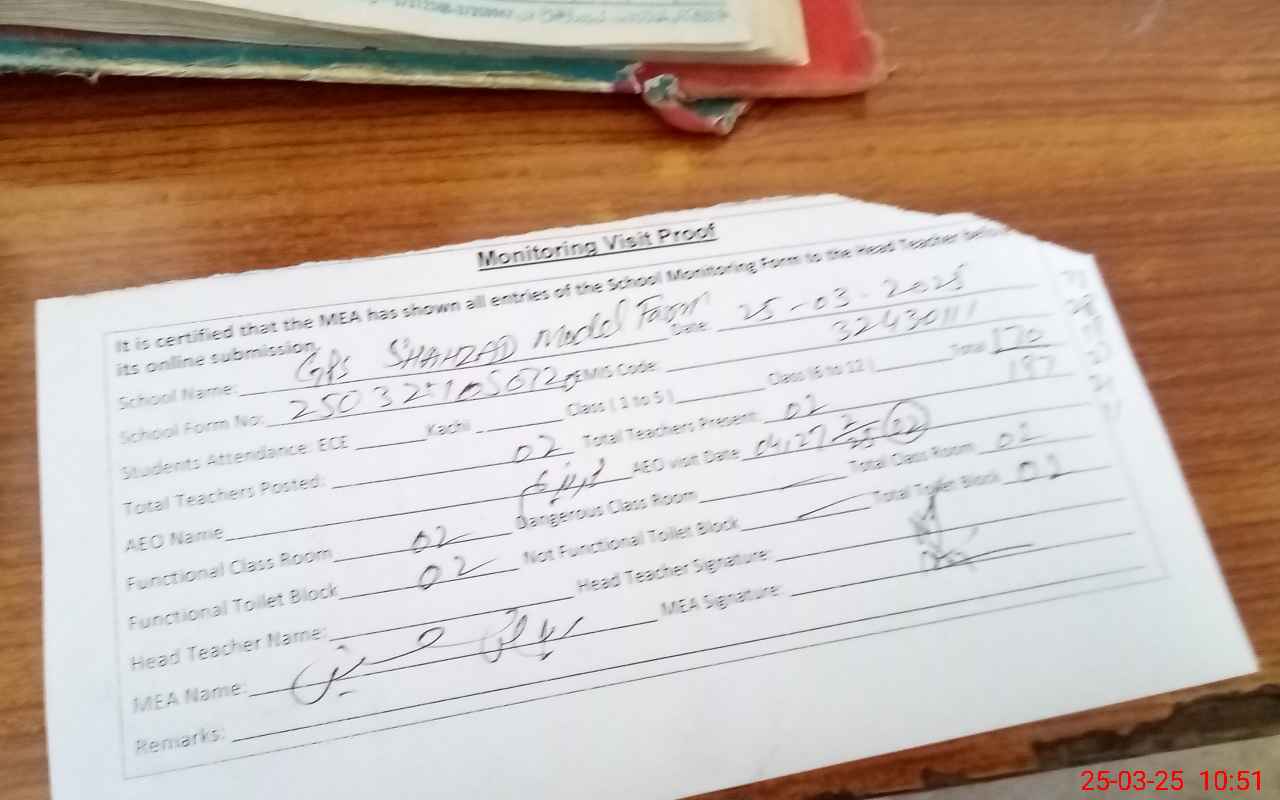 Monitoring Visit Proof
It is certified that the MEA has shown all entries of the School Monitoring Form to the Head Teacher before
its online submission.
School Name: GPS SHAHZAD Model Farm Date: 25-03-2025
School Form No: EMIS Code: 32430111
Students Attendance: ECE Kachi Class (1 to 5) Class (6 to 12) Total 170
197
Total Teachers Posted: 02 Total Teachers Present: 02
AEO Name AEO visit Date 04,27 02
Functional Class Room 02 Dangerous Class Room Total Class Room 02
Functional Toilet Block 02 Not Functional Toilet Block Total Toilet Block 02
Head Teacher Name: Head Teacher Signature:
MEA Name: MEA Signature:
Remarks:
25-03-25 10:51